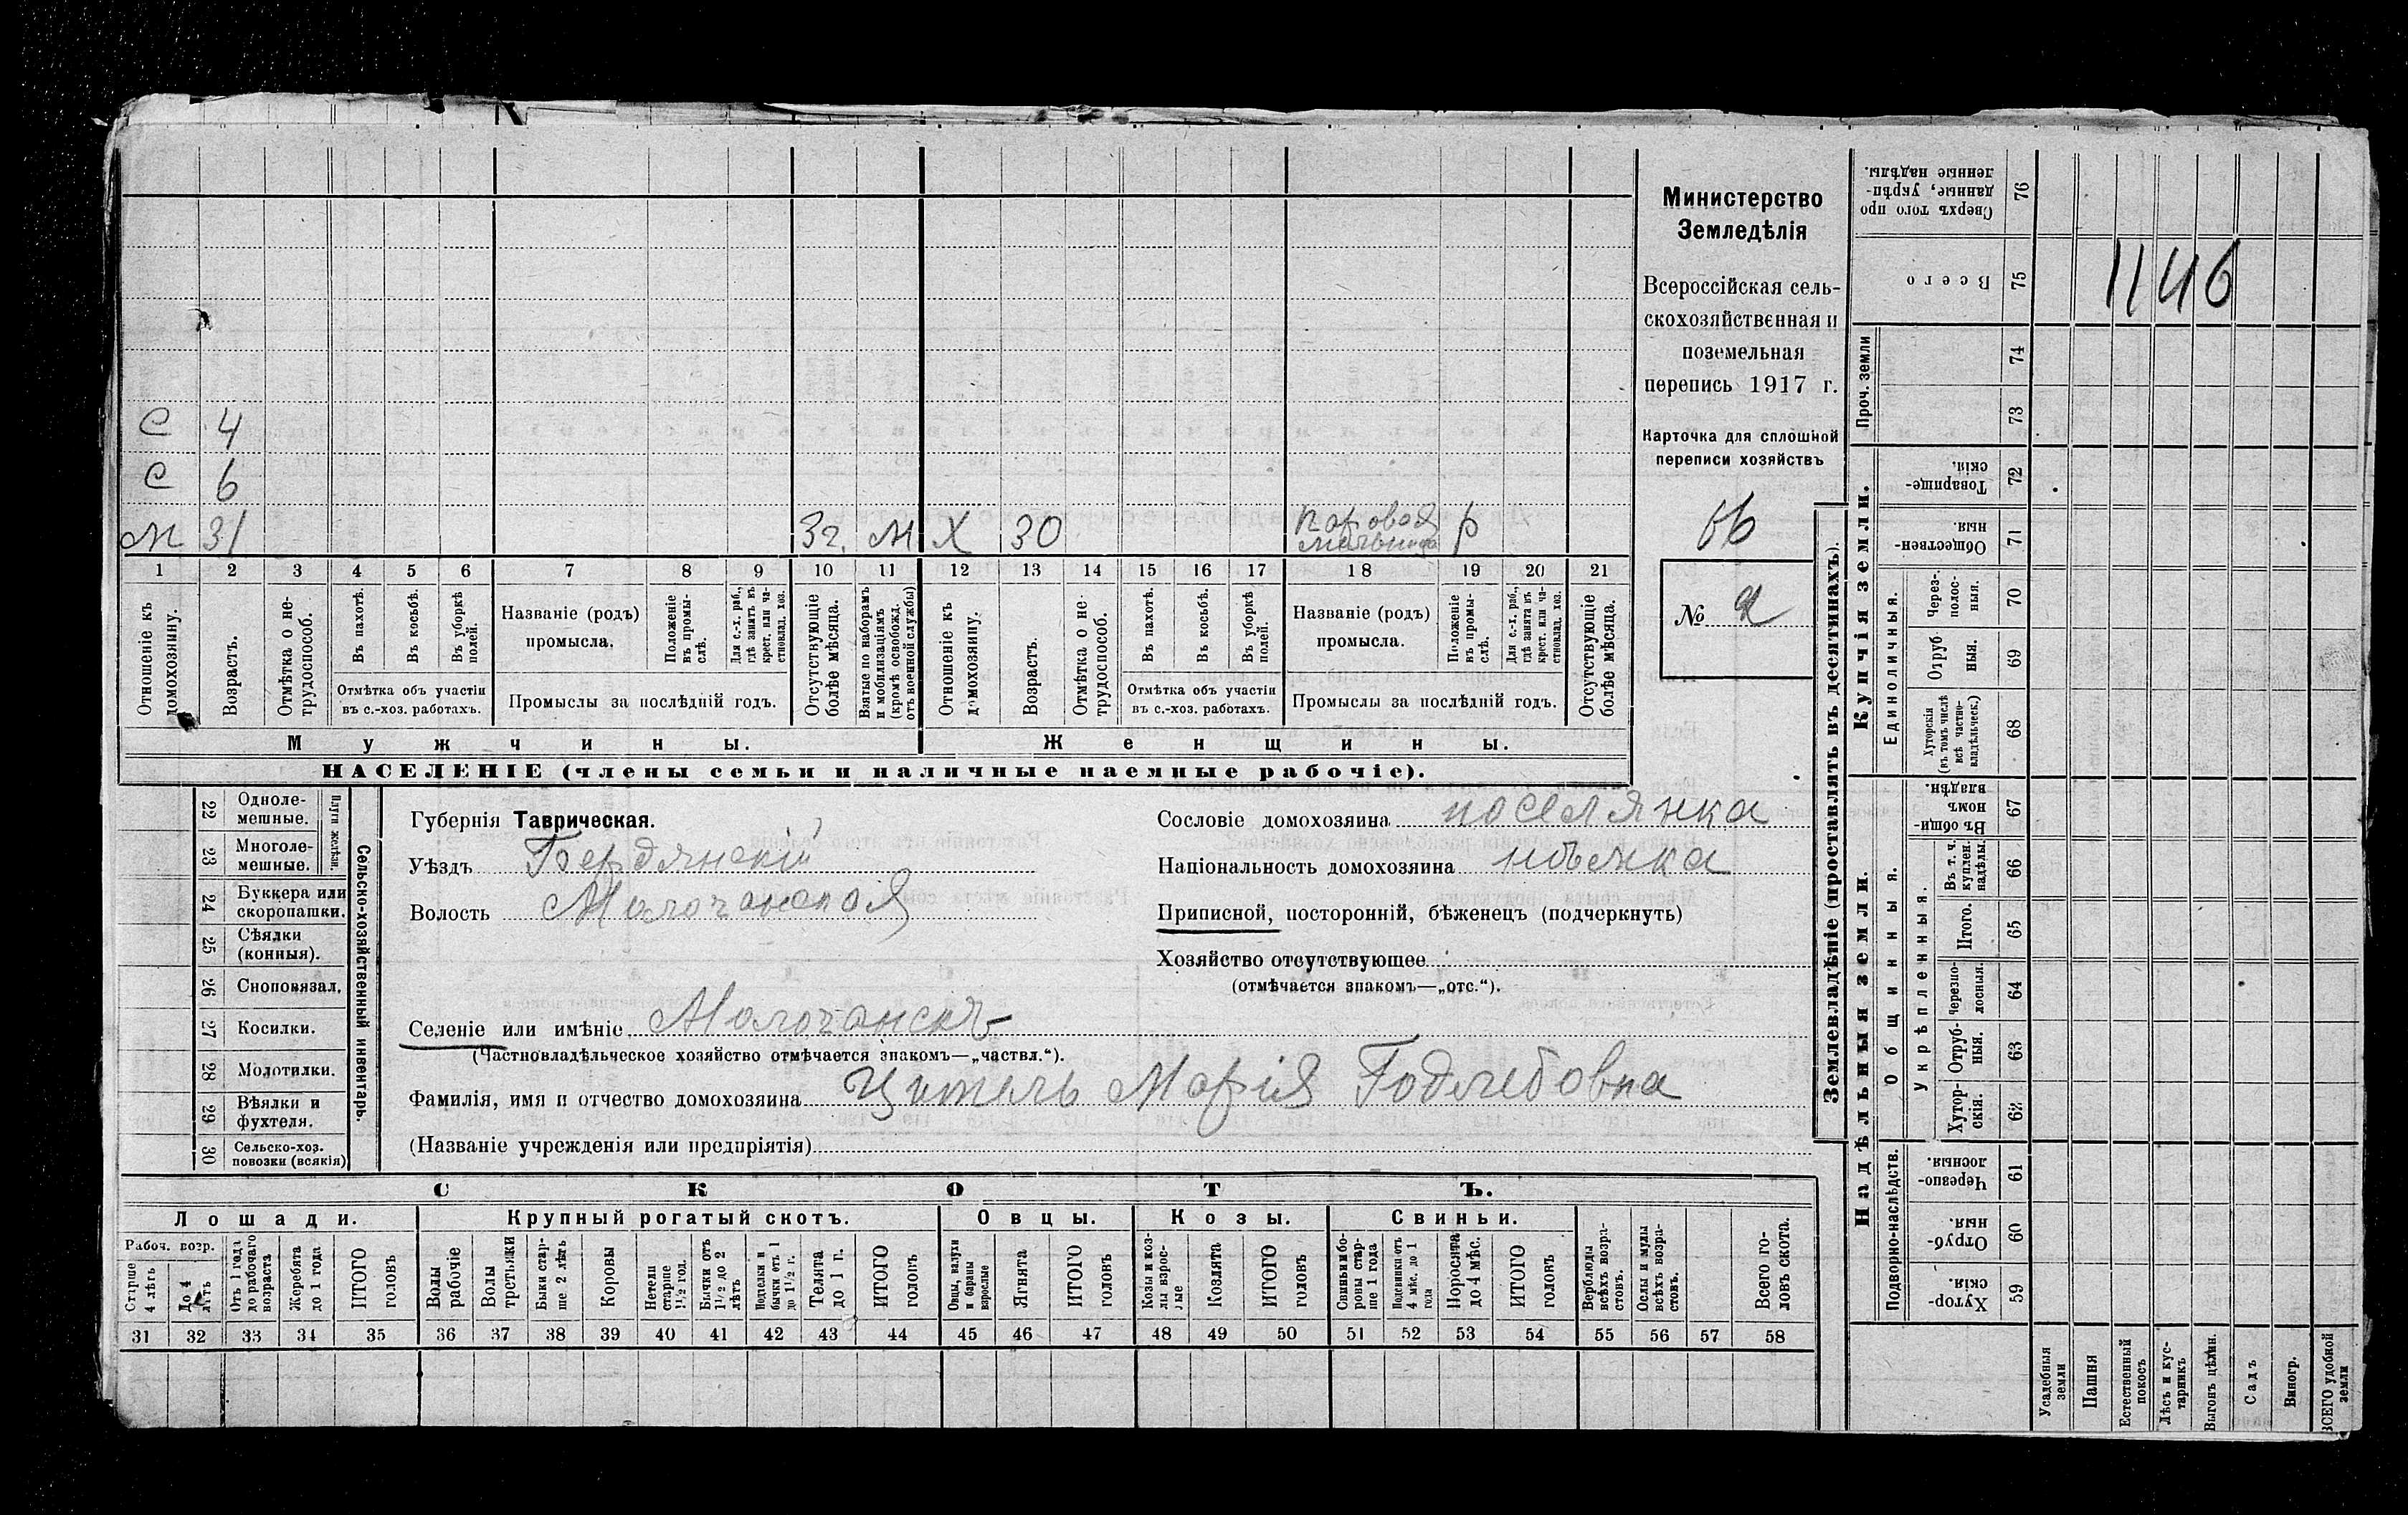 Министерство
Земледѣлія
Всероссійская сель-
скохозяйственная и
поземельная
перепись 1917 г.
Карточка для сплошной
переписи хозяйствъ
66
№ 2
С 4
С 6
М 31 3г. М Х 30 Паровая мельница р
1 2 3 4 5 6 7 8 9 10 11 12 13 14 15 16 17 18 19 20 21
Отношеніе къ домохозяину.
Возрастъ.
Отмѣтка о не-трудоспособ.
Въ пахотѣ.
Въ косьбѣ.
Въ уборкѣ полей.
Отмѣтка объ участіи въ с.-хоз. работахъ.
Названіе (родъ) промысла.
Положеніе въ промы-слѣ.
Для с.-х. раб., гдѣ занятъ въ крест. или ча-стновлад. хоз.
Промыслы за послѣдній годъ.
Отсутствующіе болѣе мѣсяца.
Взятые по наборамъ и мобилизаціямъ (кромѣ освобожд. отъ военной службы)
Отношеніе къ домохозяину.
Возрастъ.
Отмѣтка о не-трудоспособ.
Въ пахотѣ.
Въ косьбѣ.
Въ уборкѣ полей.
Отмѣтка объ участіи въ с.-хоз. работахъ.
Названіе (родъ) промысла.
Положеніе въ промы-слѣ.
Для с.-х. раб., гдѣ занята въ крест. или ча-стновлад. хоз.
Промыслы за послѣдній годъ.
Отсутствующіе болѣе мѣсяца.
Мужчины. Женщины.
НАСЕЛЕНІЕ (члены семьи и наличные наемные рабочіе).
Сельско-хозяйственный инвентарь.
Плуги желѣзн.
22 Одноле-мешные.
23 Многоле-мешные.
24 Буккера или скоропашки.
25 Сѣялки (конныя).
26 Сноповязал.
27 Косилки.
28 Молотилки.
29 Вѣялки и фухтеля.
30 Сельско-хоз. повозки (всякія)
Губернія Таврическая.
Уѣздъ Бердянскій
Волость Молочанская
Селеніе или имѣніе Молочанскъ
(Частновладѣльческое хозяйство отмѣчается знакомъ—„частвл.“).
Фамилія, имя и отчество домохозяина Цитель Марія Годлебовна
(Названіе учрежденія или предпріятія)
Сословіе домохозяина поселянка
Національность домохозяина нѣмка
Приписной, посторонній, бѣженецъ (подчеркнуть)
Хозяйство отсутствующее
(отмѣчается знакомъ—„отс.“).
СКОТЪ.
Лошади. Крупный рогатый скотъ. Овцы. Козы. Свиньи.
Рабоч. возр.
Старше 4 лѣтъ
До 4 лѣтъ
Отъ 1 года до рабочаго возраста
Жеребята до 1 года
ИТОГО головъ
Волы рабочіе
Волы третьяки
Быки стар-ше 2 лѣтъ
Коровы
Нетели старше 1½ год.
Бычки отъ 1½ до 2 лѣтъ
Подтелки и бычки отъ 1 до 1½ г.
Телята до 1 г.
ИТОГО головъ
Овцы, валухи и бараны взрослые
Ягнята
ИТОГО головъ
Козы и коз-лы взрос-лые
Козлята
ИТОГО головъ
Свиньи и бо-ровы стар-ше 1 года
Подсвинки отъ 4 мѣс. до 1 года
Поросята до 4 мѣс.
ИТОГО головъ
Верблюды всѣхъ возра-стовъ.
Ослы и мулы всѣхъ возра-стовъ.
Всего го-ловъ скота.
31 32 33 34 35 36 37 38 39 40 41 42 43 44 45 46 47 48 49 50 51 52 53 54 55 56 57 58
Землевладѣніе (проставлять въ десятинахъ).
Надѣльныя земли. Купчія земли. Проч. земли
Подворно-наслѣдств.
Общинныя.
Укрѣпленныя.
Единоличныя.
76 Сверхъ того про данные, укрѣп-ленные надѣлы.
75 Всего
1146
74
73
72 Товарище-скія.
71 Обществен-ныя
70 Через-полос-ныя.
69 Отруб ныя.
68 Хуторскія (въ томъ числѣ всѣ частно-владѣльческ.)
67 Въ общи-номъ владѣн.
66 Въ т. ч. куплен. надѣлы.
65 Итого.
64 Черезпо-лосныя.
63 Отруб-ныя.
62 Хутор-скія.
61 Черезпо-лосныя.
60 Отруб-ныя.
59 Хутор-скія.
Усадебныя земли
Пашня
Естественный покосъ
Лѣсъ и кус-тарникъ
Выгонъ цѣлин.
Садъ
Виногр.
ВСЕГО удобной земли